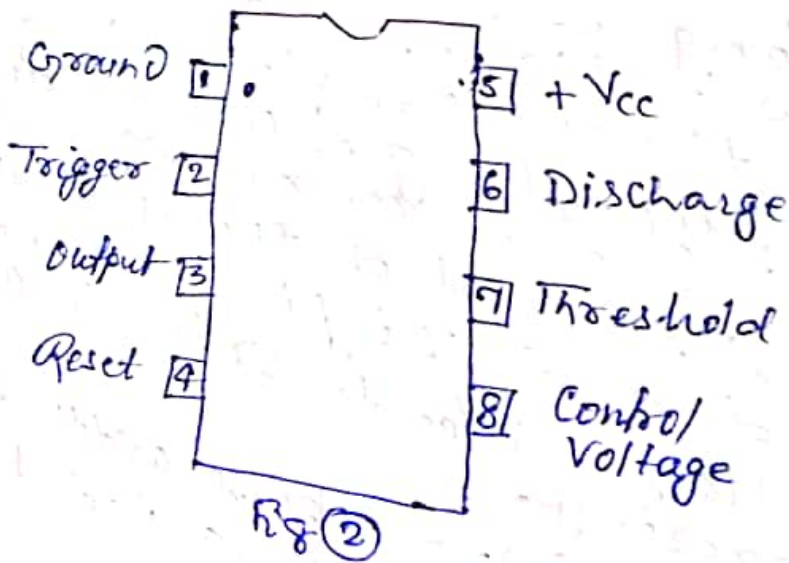 Ground 1
Trigger 2
Output 3
Reset 4
5 +Vcc
6 Discharge
7 Threshold
8 Control
Voltage
Fig 2